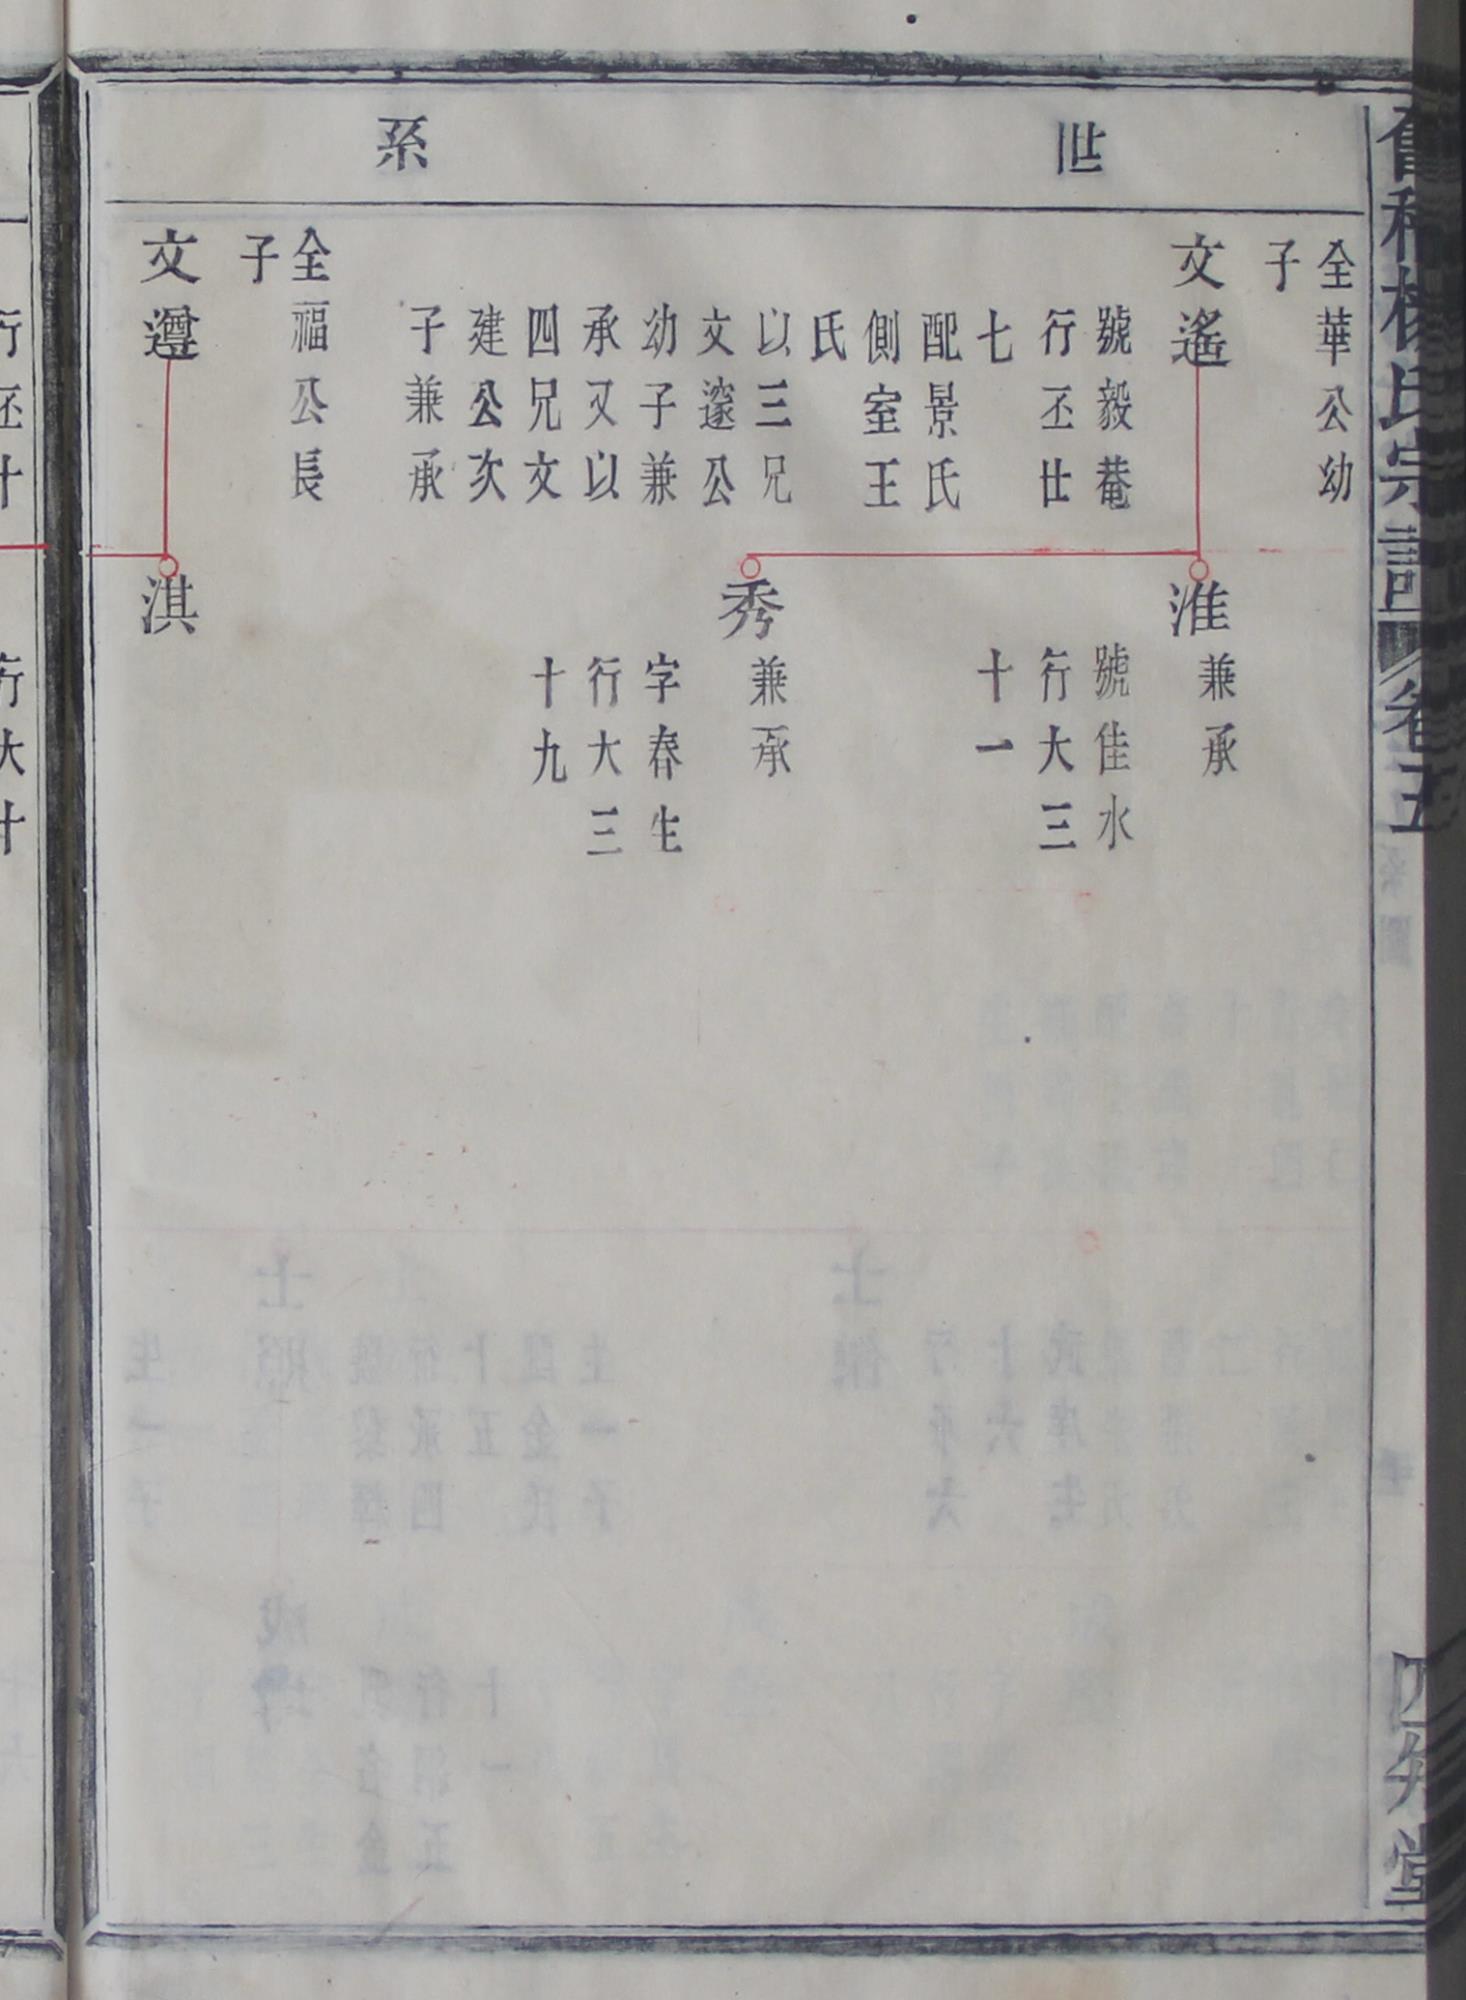 世系
全華公幼
子
文遙
號毅菴
行丕廿
七
配景氏
側室王
氏
以三兄
文邃公
幼子兼
承又以
四兄文
建公次
子兼承
淮
兼承
號佳水
行大三
十一
秀
兼承
字春生
行大三
十九
全福公長
子
文遵
淇
楊氏宗譜
卷五
四知堂